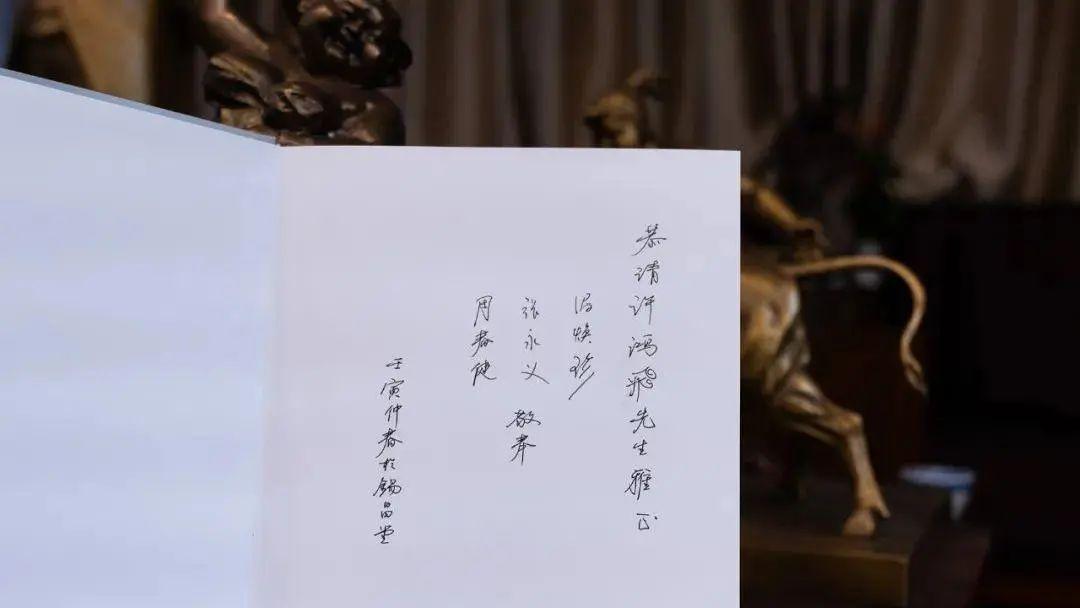 恭请许鸿飞先生雅正
冯焕珍
张永义
周春健
敬奉
壬寅仲春於锡昌堂